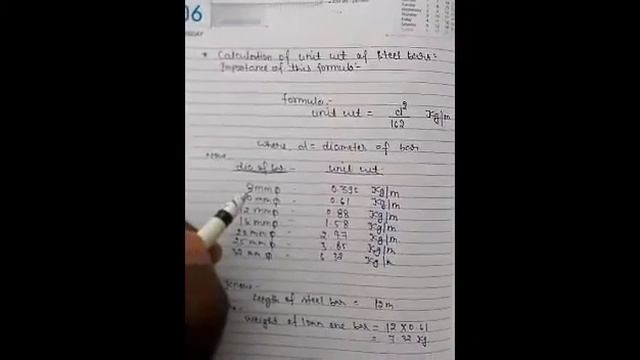 06
* Calculation of unit wt of steel bars:
Importance of this formula:-
formula:-
unit wt = d²/162 Kg/m
where d = diameter of bar
dia of bar - unit wt
8mmφ - 0.395 Kg/m
10mmφ - 0.61 Kg/m
12mmφ - 0.88 Kg/m
16mmφ - 1.58 Kg/m
20mmφ - 2.47 Kg/m
25mmφ - 3.85 Kg/m
32mmφ - 6.32 Kg/m
Know:-
Length of steel bar = 12m
Weight of 10mm one bar = 12 × 0.61
= 7.32 Kg